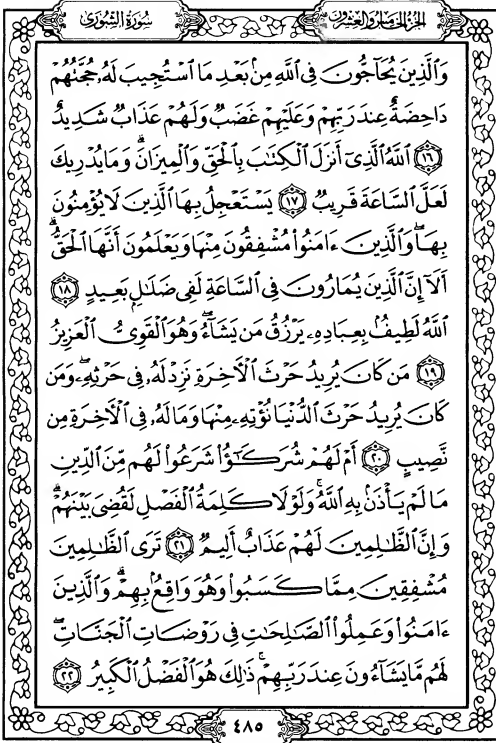 الجزء الخامس والعشرون
سورة الشورى
وَٱلَّذِينَ يُحَآجُّونَ فِى ٱللَّهِ مِنۢ بَعْدِ مَا ٱسْتُجِيبَ لَهُۥ حُجَّتُهُمْ
دَاحِضَةٌ عِندَ رَبِّهِمْ وَعَلَيْهِمْ غَضَبٌ وَلَهُمْ عَذَابٌ شَدِيدٌ
﴿١٦﴾ ٱللَّهُ ٱلَّذِىٓ أَنزَلَ ٱلْكِتَٰبَ بِٱلْحَقِّ وَٱلْمِيزَانَ ۗ وَمَا يُدْرِيكَ
لَعَلَّ ٱلسَّاعَةَ قَرِيبٌ ﴿١٧﴾ يَسْتَعْجِلُ بِهَا ٱلَّذِينَ لَا يُؤْمِنُونَ
بِهَا ۖ وَٱلَّذِينَ ءَامَنُوا۟ مُشْفِقُونَ مِنْهَا وَيَعْلَمُونَ أَنَّهَا ٱلْحَقُّ ۗ
أَلَآ إِنَّ ٱلَّذِينَ يُمَارُونَ فِى ٱلسَّاعَةِ لَفِى ضَلَٰلٍۭ بَعِيدٍ ﴿١٨﴾
ٱللَّهُ لَطِيفٌۢ بِعِبَادِهِۦ يَرْزُقُ مَن يَشَآءُ ۖ وَهُوَ ٱلْقَوِىُّ ٱلْعَزِيزُ
﴿١٩﴾ مَن كَانَ يُرِيدُ حَرْثَ ٱلْءَاخِرَةِ نَزِدْ لَهُۥ فِى حَرْثِهِۦ ۖ وَمَن
كَانَ يُرِيدُ حَرْثَ ٱلدُّنْيَا نُؤْتِهِۦ مِنْهَا وَمَا لَهُۥ فِى ٱلْءَاخِرَةِ مِن
نَّصِيبٍ ﴿٢٠﴾ أَمْ لَهُمْ شُرَكَٰٓؤُا۟ شَرَعُوا۟ لَهُم مِّنَ ٱلدِّينِ
مَا لَمْ يَأْذَنۢ بِهِ ٱللَّهُ ۚ وَلَوْلَا كَلِمَةُ ٱلْفَصْلِ لَقُضِىَ بَيْنَهُمْ ۗ
وَإِنَّ ٱلظَّٰلِمِينَ لَهُمْ عَذَابٌ أَلِيمٌ ﴿٢١﴾ تَرَى ٱلظَّٰلِمِينَ
مُشْفِقِينَ مِمَّا كَسَبُوا۟ وَهُوَ وَاقِعٌۢ بِهِمْ ۗ وَٱلَّذِينَ
ءَامَنُوا۟ وَعَمِلُوا۟ ٱلصَّٰلِحَٰتِ فِى رَوْضَاتِ ٱلْجَنَّاتِ ۖ
لَهُم مَّا يَشَآءُونَ عِندَ رَبِّهِمْ ۚ ذَٰلِكَ هُوَ ٱلْفَضْلُ ٱلْكَبِيرُ ﴿٢٢﴾
٤٨٥